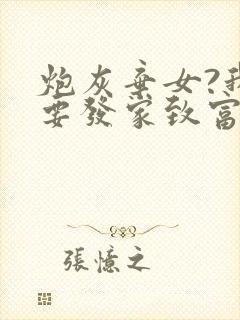 炮灰棄女?我
要發家致富
張憶之